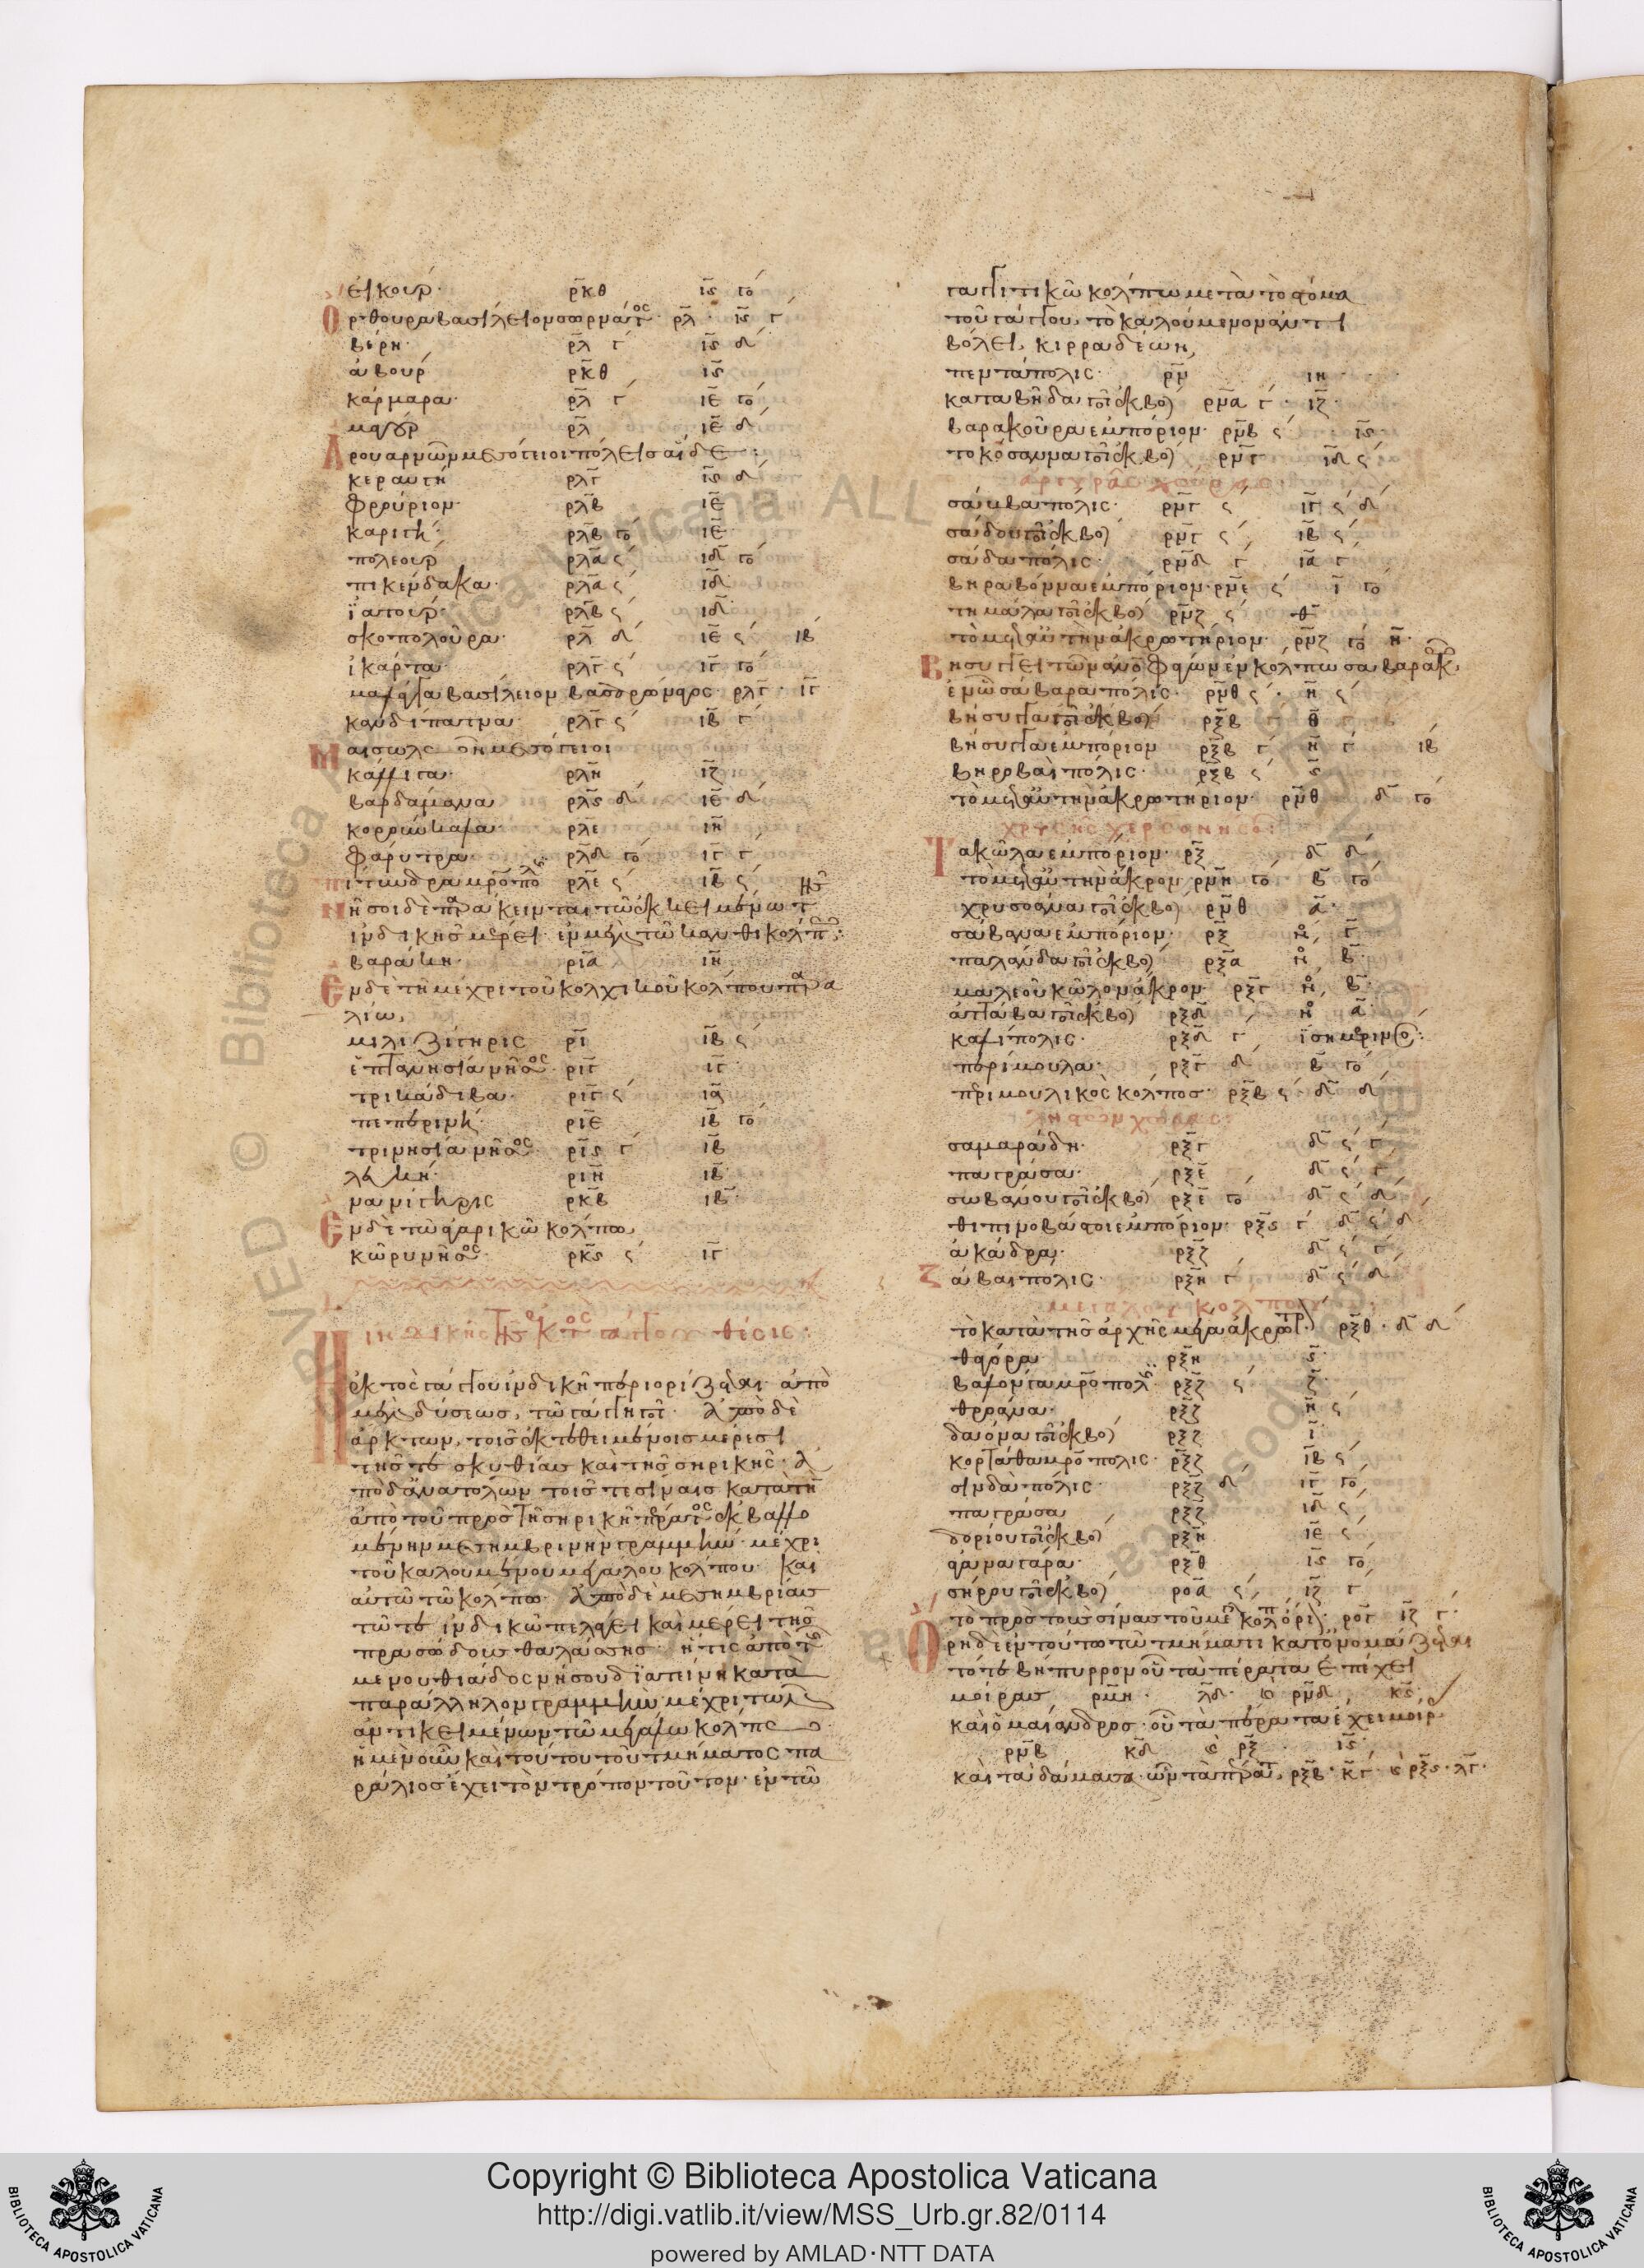 εἰκουρ ρκθ ιϛ γο
Ορθουρα βασίλειον σωρνάγος ρλ ιϛ γ
βέρη ρλ γ ιϛ δ
ἀβουρ ρκθ ιϛ
κάρμαρα ρλ γ ιε γο
μαγουρ ρλ ιε δ
Αρουαρνῶν μεσόγειοι πόλεις αἵδε
κεραυγη ρλγ ιϛ δ
φρούριον ρλβ ιε
καριγη ρλβ γο ιε
πολεουρ ρλα ϛ ιδ γο
πικένδακα ρλα ϛ ιδ
ϊατουρ ρλβ ϛ ιδ
σκοπολοῦρα ρλ δ ιε ϛ ιβ
ἰκάρτα ρλγ ϛ ιγ γο
μαλάγγα βασίλειον βασσρώναγος ρλγ ιγ
κανδίπατνα ρλγ ϛ ιβ γ
Μαισώλων μεσόγειοι
κάλλιγα ρλη ιζ
βαρδαμανα ρλϛ δ ιε δ
κορρούγκαλα ρλε ιη
φάρυτρα ρλδ γο ιγ γ
πιτυνδρα μρόπολις ρλε ϛ ιβ ϛ
Νῆσοι δὲ παράκεινται τῷ ἐκκειμένῳ τ
ἰνδικῆς μέρει ἐν μὲν τῷ κανθι κόλπ
βαράκη ρια ιη
Εν δε τῇ μέχρι τοῦ κολχικοῦ κόλπου παρα
λίω
μιλιζίγηρις ρι ιβ ϛ
ἑπτανησία νῆσος ριγ ιγ
τρικάδιβα ριγ ϛ ια
πεπερινη ριε ιβ γο
τρινησία νῆσος ριϛ γ ιβ
λευκη ριη ιβ
νανιγηρις ρκβ ιβ
Εν δὲ τῷ ἀγαρικῷ κόλπω
κῶρυ νῆσος ρκϛ ϛ ιγ
ἰνδικῆς τῆς ἐκτὸς γάγγου θέσις
Η ἐκτὸς γάγγου ἰνδικὴ περιορίζεται ἀπὸ
μὲν δύσεως, τῷ γάγγῃ ποτ ἀπὸ δὲ
ἄρκτων, τοῖς ἐκτεθειμένοις μέρεσι
τῆς τε σκυθίας καὶ τῆς σηρικῆς ἀ
πὸ δ᾽ ἀνατολῶν τοῖς τε σίναις κατὰ τὴ
ἀπὸ τοῦ πρὸς τῇ σηρικῇ πέρατος ἐκβαλλο
μένην μεσημβρινὴν γραμμὴν μέχρι
τοῦ καλουμένου μεγάλου κόλπου καὶ
αὐτῷ τῷ κόλπω ἀπὸ δὲ μεσημβρίας
τῷ τε ἰνδικῷ πελάγει καὶ μέρει τῆς
πρασώδους θαλάσσης ἥτις ἀπὸ τ
μενουθιάδος νήσου διατείνη κατὰ
παράλληλον γραμμὴν μέχρι τῶν
ἀντικειμένων τῷ μεγάλω κόλπω
ἡ μὲν οὖν καὶ τούτου τοῦ τμήματος πα
ράλιος ἔχει τὸν τρόπον τοῦτον ἐν τῷ
γαγγιτικῷ κόλπω μετὰ τὸ στόμα
τοῦ γάγγου, τὸ καλούμενον ἀντι
βόλει, κιρραδέων,
πεντάπολις ρν ιη
καταβήδα ποτ ἐκβο) ρνα γ ιζ
βαρακοῦρα ἐμπόριον ρνβ ϛ ιϛ
τοκόσαννα ποτ ἐκβο) ρνγ ιδ ϛ
ἀργυρᾶς χώρας
σάμβα πόλις ρνγ ϛ ιγ ϛ δ
σάδου ποτ ἐκβο) ρνγ ϛ ιβ ϛ
σάδα πόλις ρνδ γ ια γ
βηραβόννα ἐμπόριον ρνε ϛ ι γο
τημάλα ποτ ἐκβο) ρνζ ϛ θ
τὸ μετ αὐτὴν ἀκρωτήριον ρνζ γο η
Βησυγγειτῶν ἀνθρωποφάγων ἐν κόλπω σαβαρακ
ἐν ᾧ σάβαρα πόλις ρνθ ϛ η ϛ
βήσυγγα ποτ ἐκβο) ρξβ γ θ
βήσυγγα ἐμπόριον ρξβ γ η γ ιβ
βηρόβαι πόλις ρξβ ϛ ϛ
τὸ μετ αὐτὴν ἀκρωτήριον ρνθ δ γο
χρυσῆς χερσονήσου
Τακῶλα ἐμπόριον ρξ δ δ
τὸ μετ αὐτὴν ἄκρον ρνη γο β γο
χρυσοάνα ποτ ἐκβο) ρνθ α
σάβανα ἐμπόριον ρξ νο γ
παλάνδα ποτ ἐκβο) ρξα νο β
μαλεοῦ κῶλον ἄκρον ρξγ νο β
ἀτταβα ποτ ἐκβο) ρξδ νο α
καλίπολις ρξδ γ ἰσημερινός
πέριμουλα ρξγ δ β γο
πριμουλικὸς κόλπος ρξβ ϛ δ δ
λῃστῶν χώρας
σαμαράδη ρξγ δ ϛ γ
παγράσα ρξε δ ϛ γ
σωβανου ποτ ἐκβο) ρξε γο δ ϛ δ
θιπινοβάστοι ἐμπόριον ρξϛ γ δ ϛ δ
ἀκάδρα ρξζ δ ϛ γ
Ζάβαι πόλις ρξη γ δ ϛ δ
μεγάλου κόλπου
τὸ κατὰ τῆς ἀρχῆς μέγα ἀκρωτηρ) ρξθ δ δ
θαγόρα ρξη ϛ
βαλόνγα μρόπολ ρξζ ϛ ζ
θρόανα ρξζ η ϛ
δαόνα ποτ ἐκβο) ρξζ ι
κορταθα μρόπολις ρξζ ιβ ϛ
σίνδα πόλις ρξζ δ ιγ γο
παγράσα ρξζ ιδ ϛ
δορίου ποτ ἐκβο) ρξη ιε ϛ
ἀγαναγάρα ρξθ ιϛ γο
σήρου ποτ ἐκβο) ροα ϛ ιζ γ
τὸ πρὸς τοὺς σίνας τοῦ με κολπ ὁρι) ρογ ιζ γ
Ορη δε ἐν τούτω τῷ τμήματι κατονομάζεται
τό τε βήπυρρον οὗ τὰ πέρατα ἐπέχει
μοίρας ρμη λδ κ ρνδ κϛ
καὶ ὁ μαίανδρος οὗ τὰ πέρατα ἔχει μοίρ
ρνβ κδ κ ρξ ιϛ
καὶ τὰ δάμασα ὧν τὰ πέρατ ρξβ κγ κ ρξϛ λγ